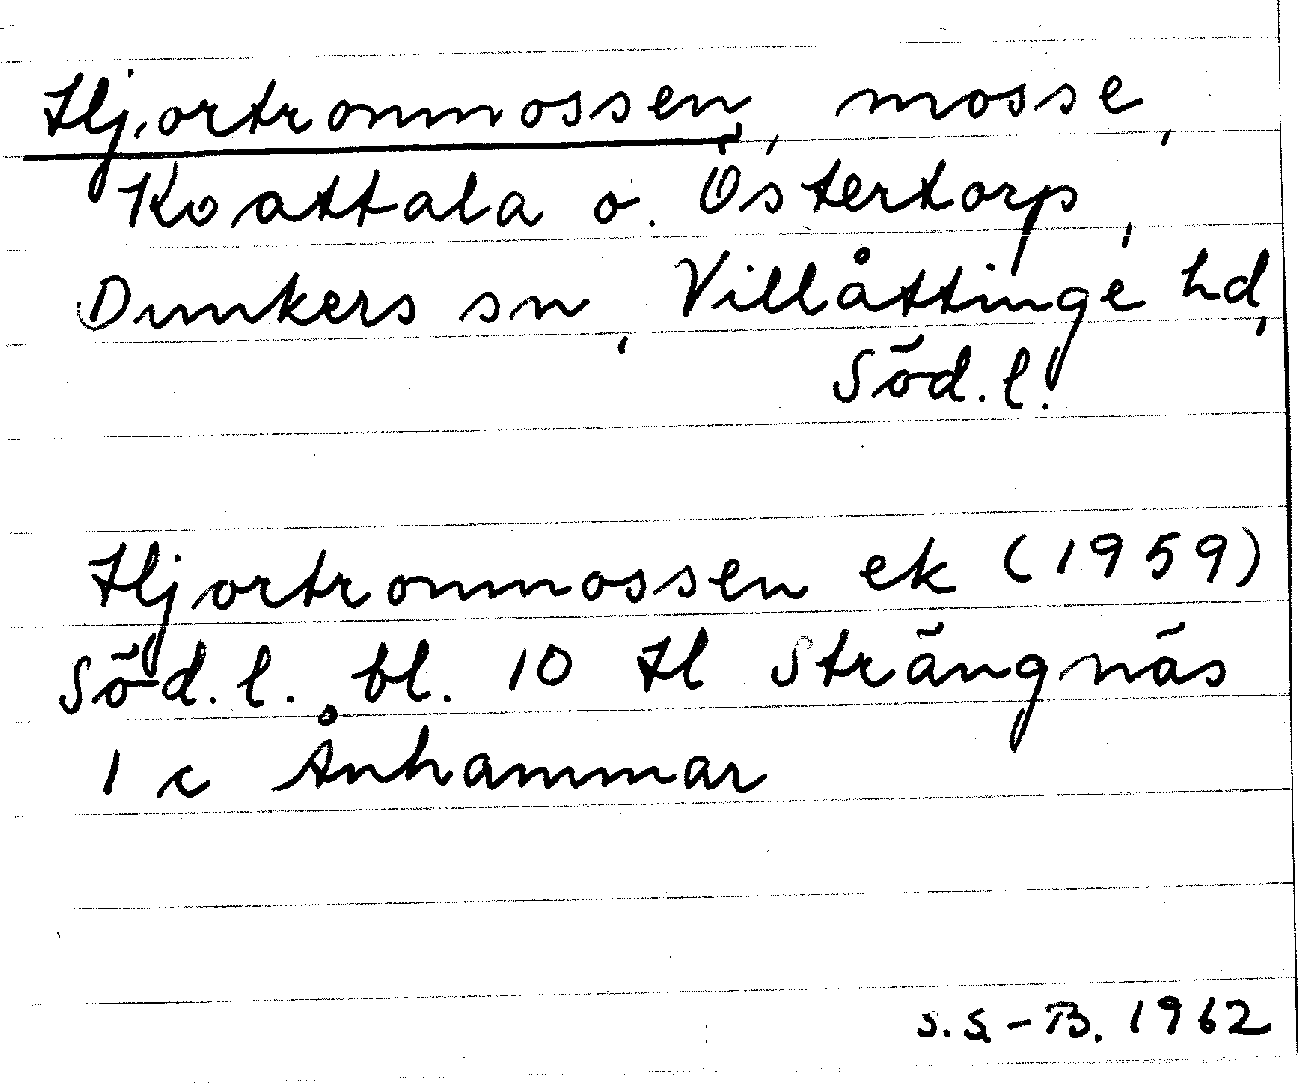 Hjortronmossen, mosse,
Koattala o. Östertorp,
Dunkers sn, Villåttinge hd,
Söd.l.
Hjortronmossen ek (1959)
Söd.l. bl. 10 H Strängnäs
1 c Ånhammar
S.S.-B. 1962